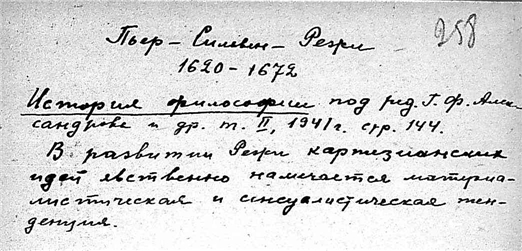 258
Пьер - Сильвен - Режи
1620 - 1672
История философии под ред. Г. Ф. Алек
сандрова и др. т. II, 1941 г. стр. 144.
В развитии Режи картезианских
идей явственно намечается материа-
листическая и сенсуалистическая тен-
денция.